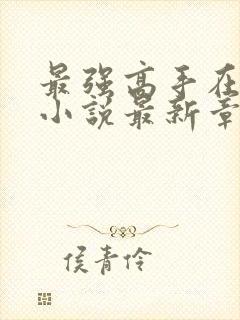 最强高手在
小说最新章
侯青伶